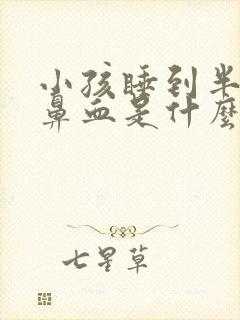 小孩睡到半
鼻血是什麼
七星草